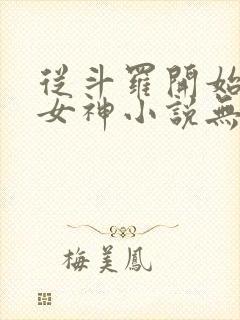 從斗羅開始
女神小說無
梅美鳳